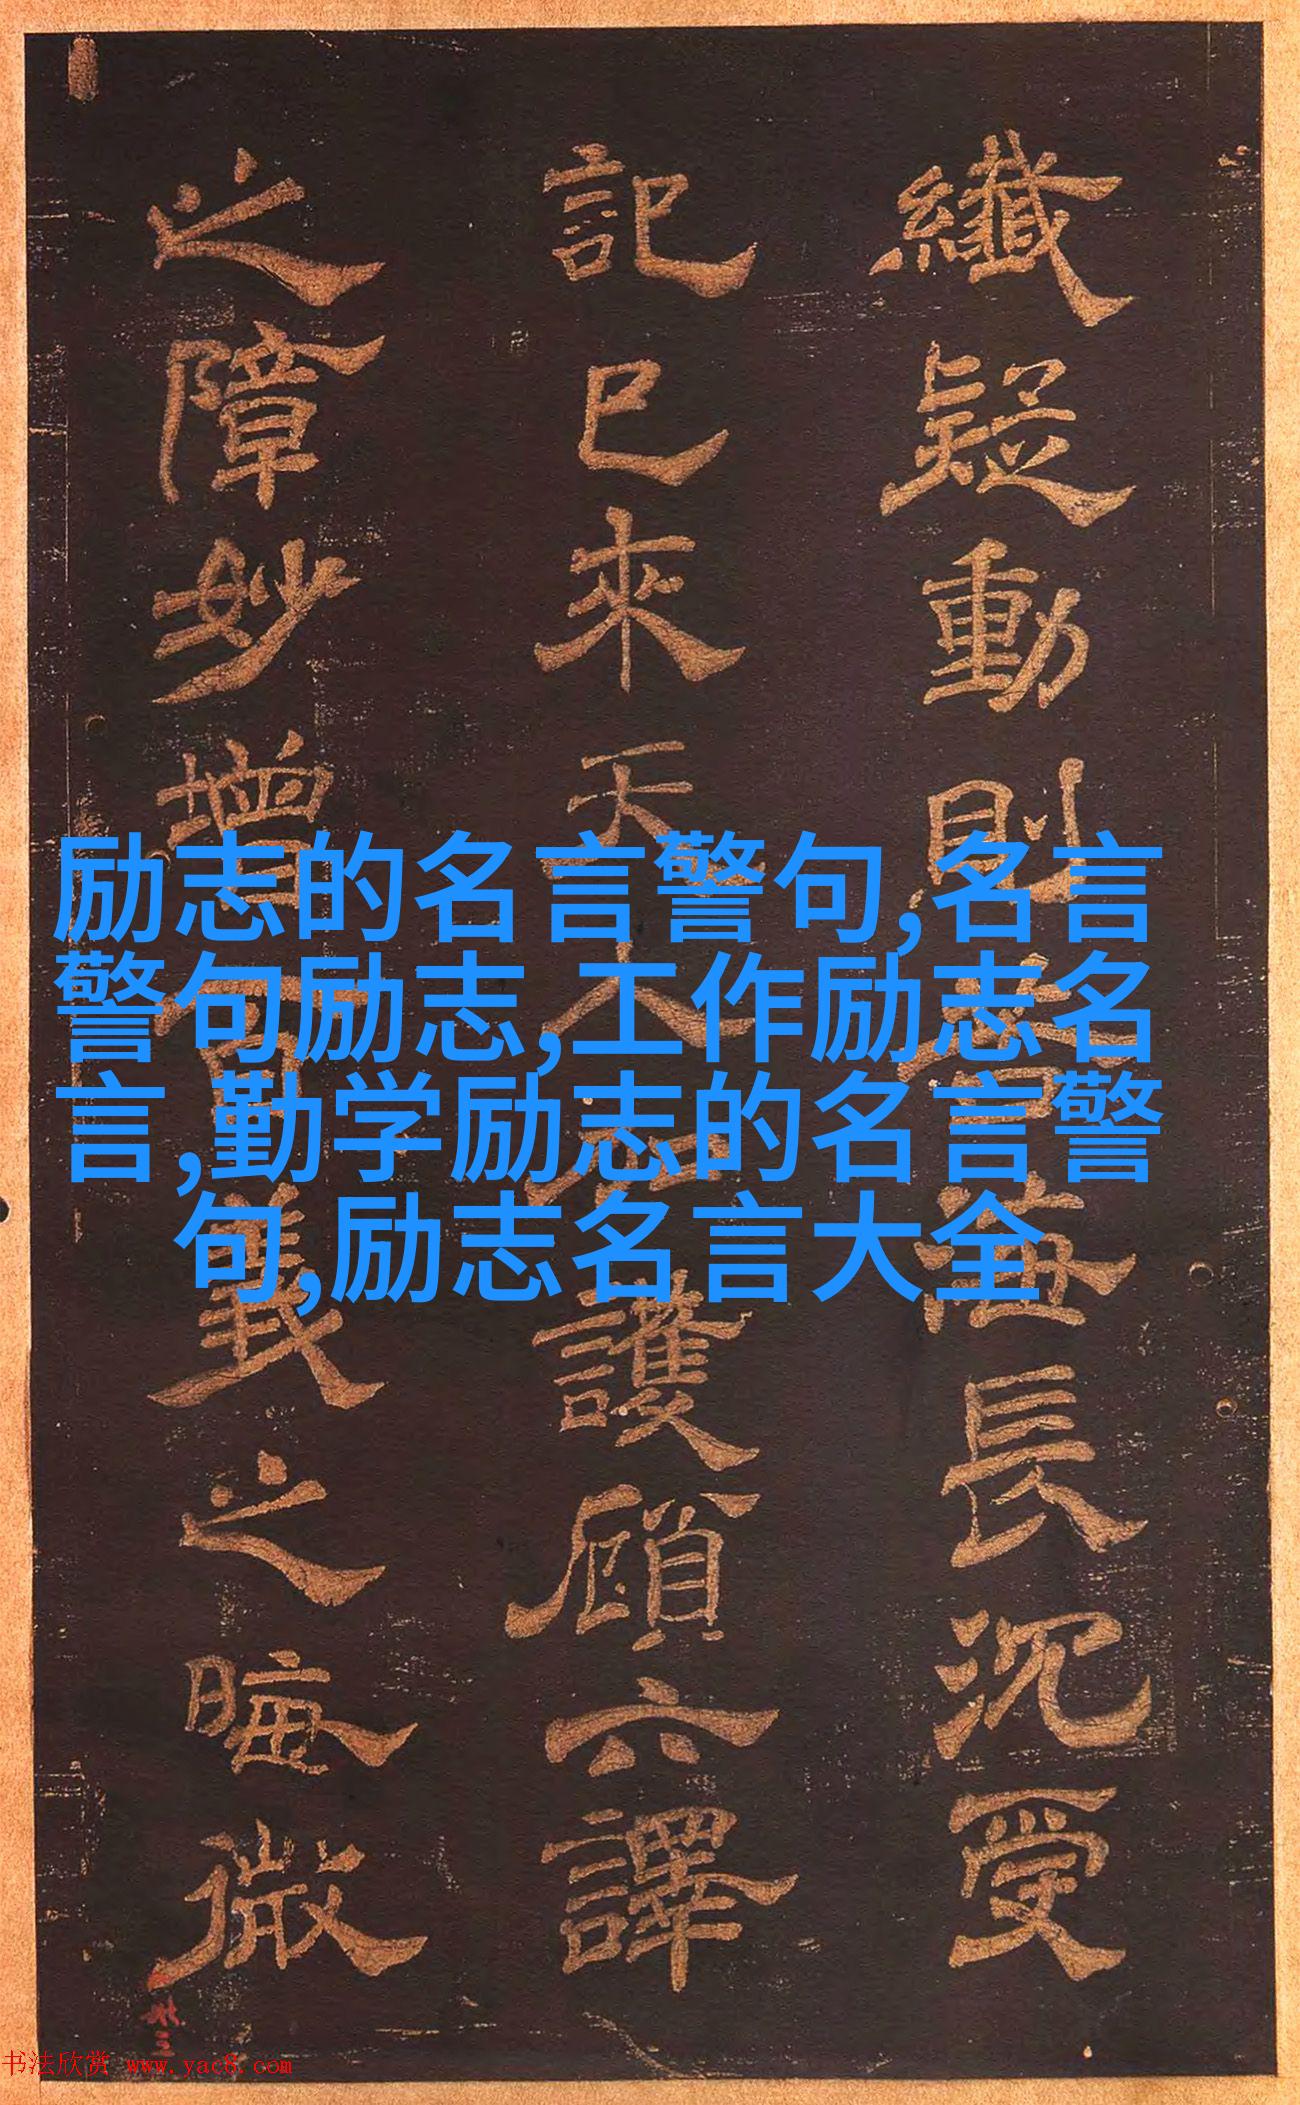 纖疑動則長沉受
記已來天人護顧六譯
之障妙增義之晦微
励志的名言警句,名言
警句励志,工作励志名
言,勤学励志的名言警
句,励志名言大全
书法欣赏 www.yac8.com